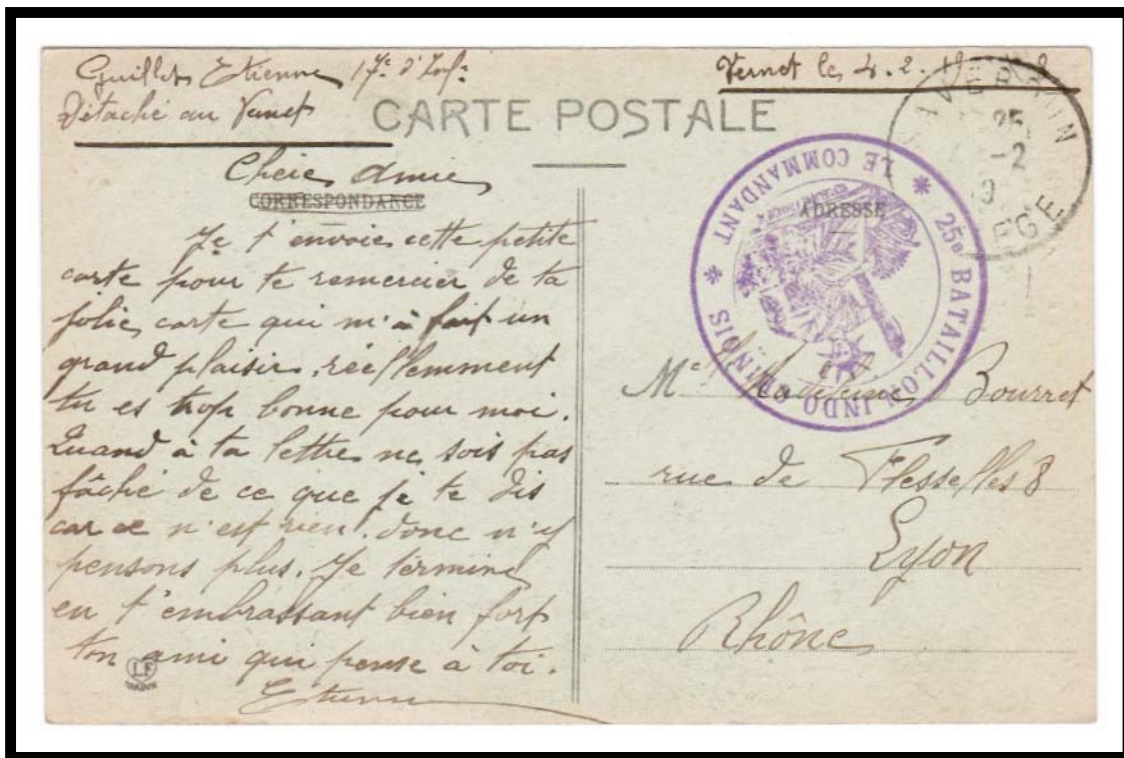 Guillet Etienne 17e d'Infie
Détaché au Vernet
Vernet le 4.2.19
CARTE POSTALE
Chère Amie
CORRESPONDANCE
Je t'envoie cette petite
carte pour te remercier de ta
jolie carte qui m'a fait un
grand plaisir. réellemment
tu es trop bonne pour moi.
Quand à ta lettre ne sois pas
fâché de ce que je te dis
car ce n'est rien. donc n'y
pensons plus. Je termine
en t'embrassant bien fort
ton ami qui pense à toi.
Etienne
LF
SAVERDUN
25
-2
ARIEGE
* LE COMMANDANT *
25e BATAILLON INDO CHINOIS
ADRESSE
Melle Bourret
rue de Flesselles 8
Lyon
Rhône